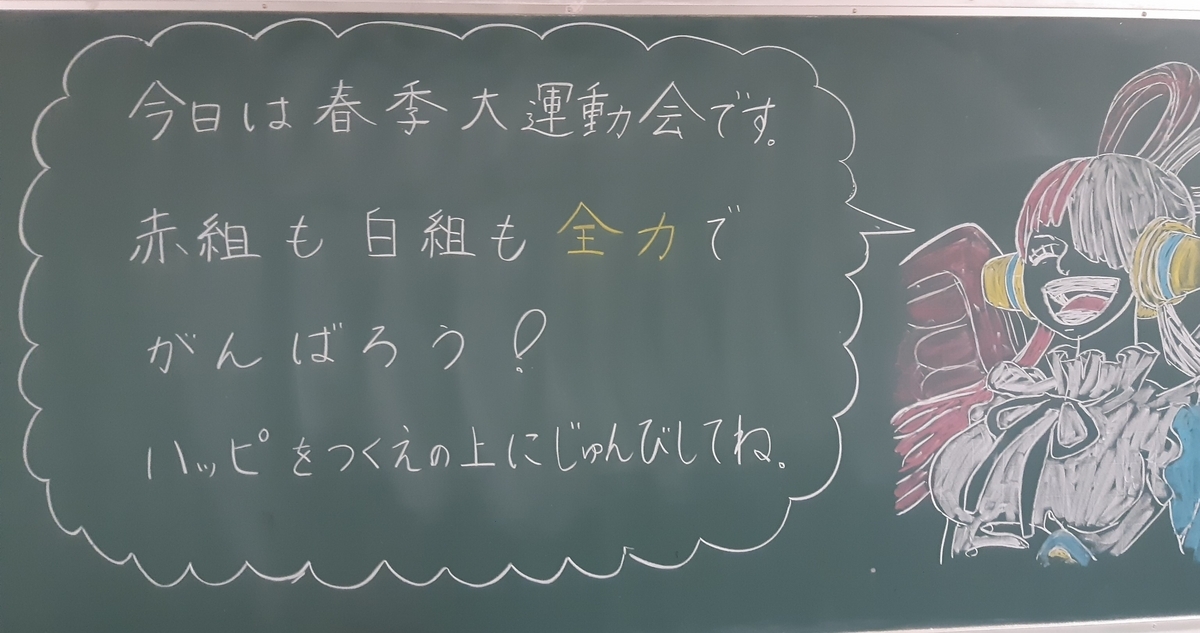 今日は春季大運動会です。
赤組も白組も全力で
がんばろう!
ハッピをつくえの上にじゅんびしてね。